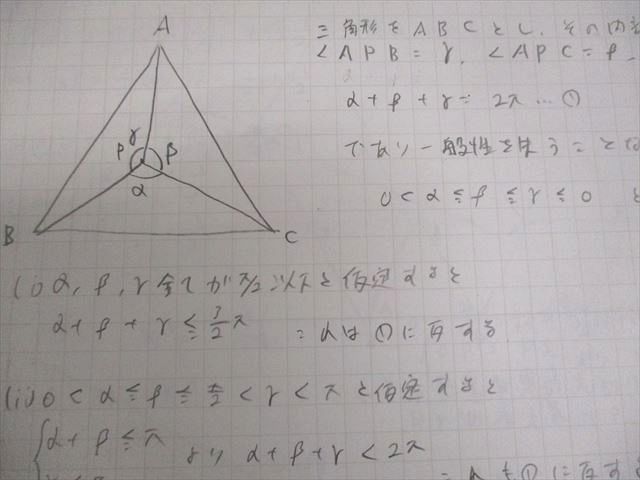 A
三角形をABCとし、その内
∠APB=γ, ∠APC=β,
α+β+γ=2π…①
であり一般性を失うことな
0<α≦β≦γ≦0
γ
P
β
α
B
C
(i) α, β, γ 全てがπ/2以下と仮定すると
α+β+γ≦3/2π これは①に反する
(ii) 0<α≦β≦π/2<γ<πと仮定すると
α+β≦π
より α+β+γ<2π
これも①に反する